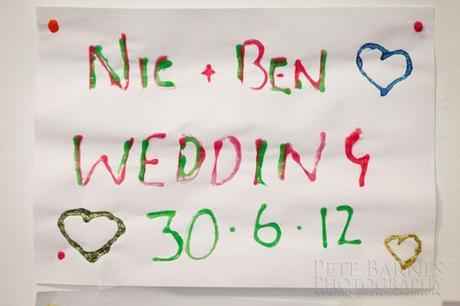 Nic + Ben
WEDDING
30.6.12
PETE BARNES
PHOTOGRAPHY